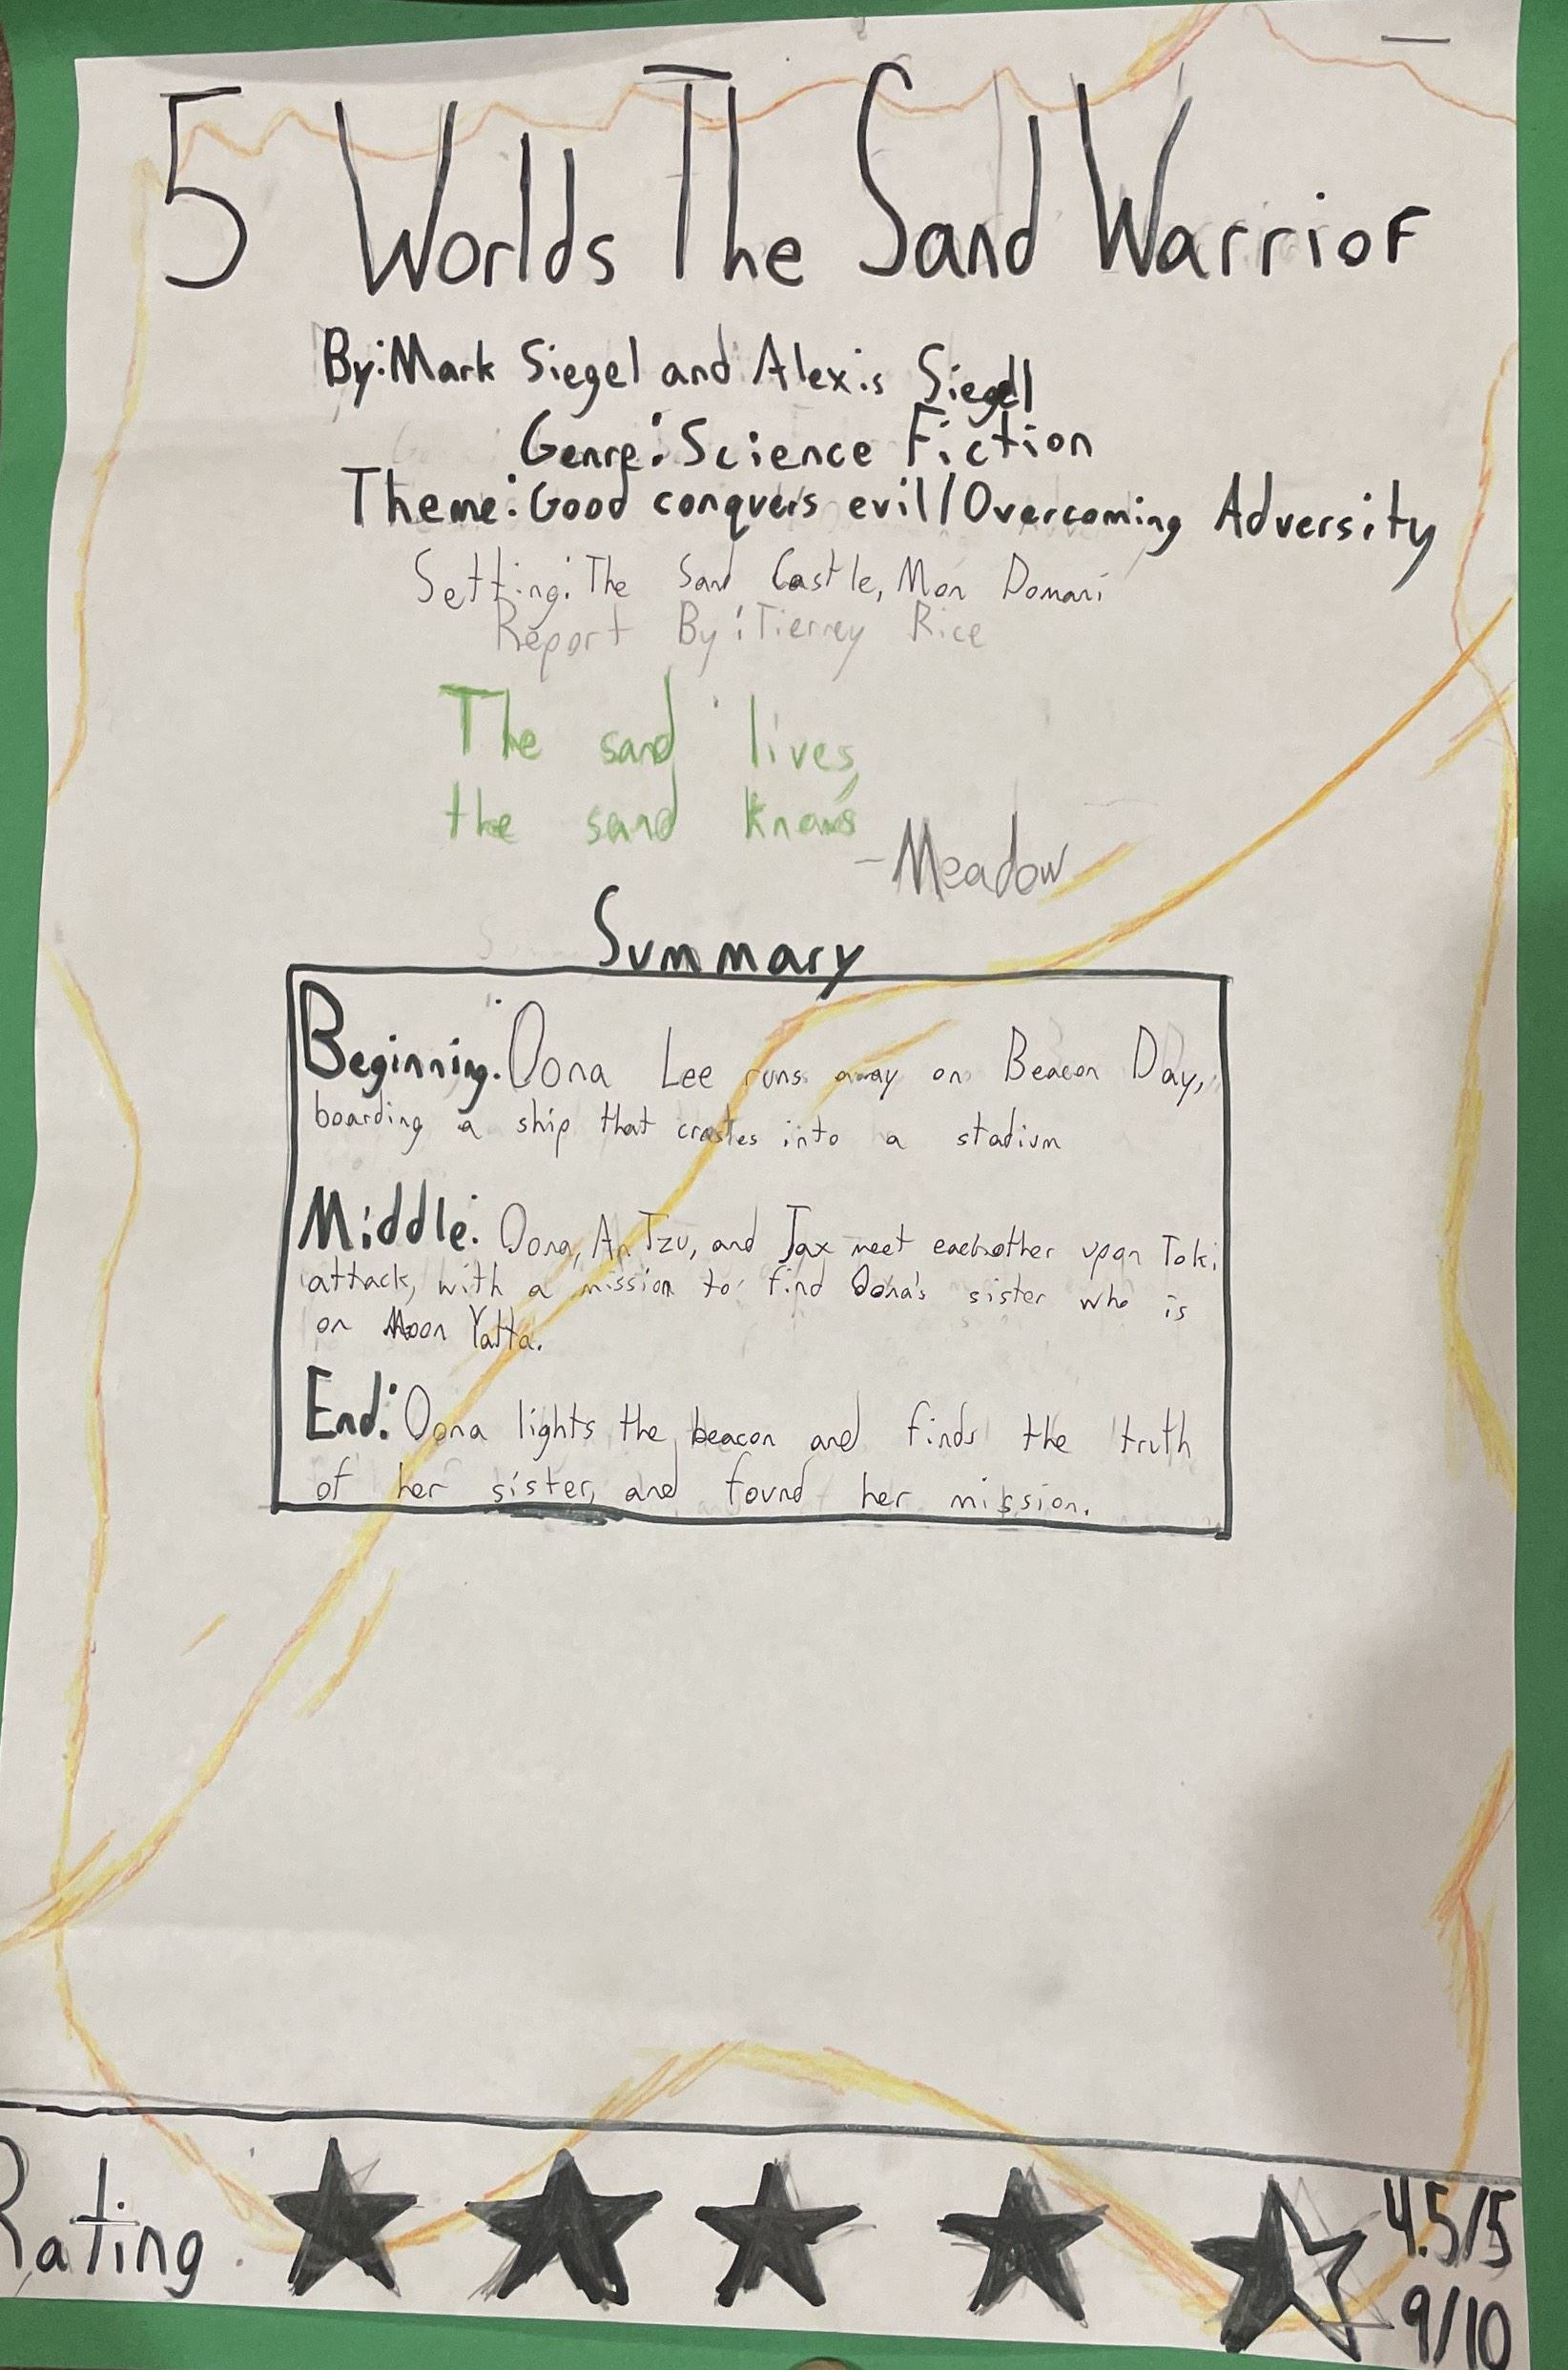 5 Worlds The Sand Warrior
By: Mark Siegel and Alexis Siegel
Genre: Science Fiction
Theme: Good conquers evil/Overcoming Adversity
Setting: The Sand Castle, Mon Domani
Report By: Tierney Rice
The sand lives,
the sand knows
-Meadow
Summary
Beginning: Oona Lee runs away on Beacon Day,
boarding a ship that crashes into a stadium
Middle: Oona, An Tzu, and Jax meet eachother upon Toki
attack, with a mission to find Oona's sister who is
on Moon Yatta.
End: Oona lights the beacon and finds the truth
of her sister, and found her mission.
Rating: 4.5/5
9/10